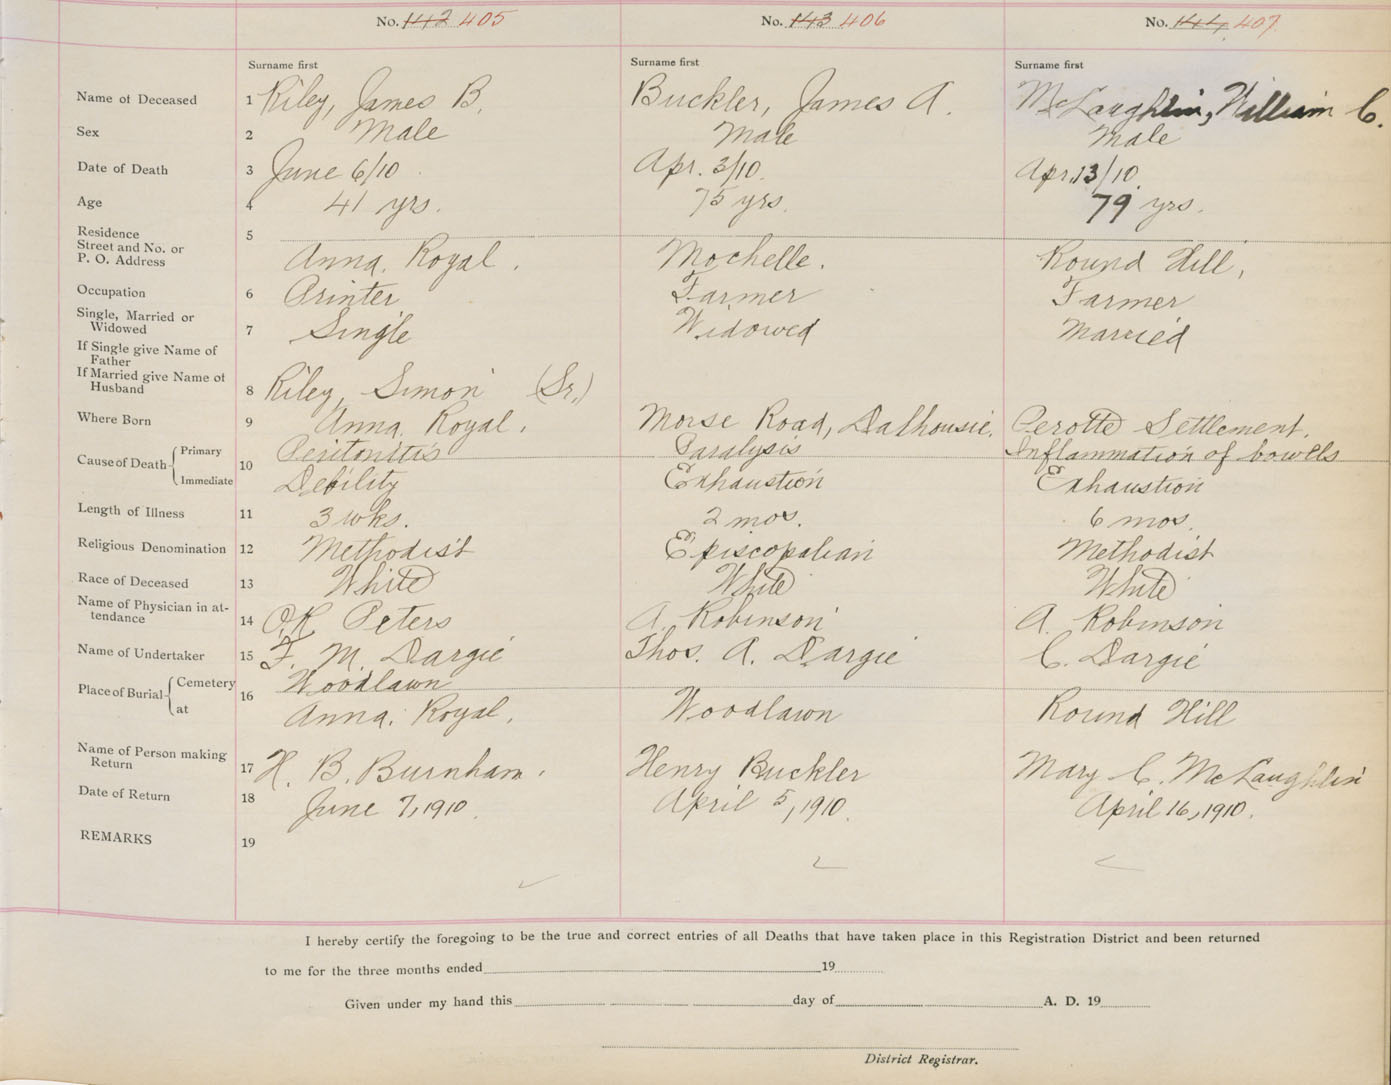 No. 142 405 No. 143 406 No. 144 407
Surname first Surname first Surname first
Name of Deceased 1 Riley, James B. Buckler, James A. McLaughlin, William C.
Sex 2 Male Male Male
Date of Death 3 June 6/10 Apr. 3/10. Apr. 13/10.
Age 4 41 yrs. 75 yrs. 79 yrs.
Residence 5
Street and No. or
P. O. Address Anna. Royal. Mochelle. Round Hill,
Occupation 6 Printer Farmer Farmer
Single, Married or
Widowed 7 Single Widowed Married
If Single give Name of
Father
If Married give Name of
Husband 8 Riley, Simon (Sr.)
Where Born 9 Anna. Royal. Morse Road, Dalhousie. Perotte Settlement.
Cause of Death Primary 10 Peritonitis Paralysis Inflammation of bowels
Immediate Debility Exhaustion Exhaustion
Length of Illness 11 3 wks. 2 mos. 6 mos.
Religious Denomination 12 Methodist Episcopalian Methodist
Race of Deceased 13 White White White
Name of Physician in at-
tendance 14 O.R. Peters A. Robinson A. Robinson
Name of Undertaker 15 F. M. Dargie Thos. A. Dargie C. Dargie
Place of Burial Cemetery 16 Woodlawn
at Anna. Royal. Woodlawn Round Hill
Name of Person making
Return 17 H. B. Burnham. Henry Buckler Mary C. McLaughlin
Date of Return 18 June 7, 1910. April 5, 1910. April 16, 1910.
REMARKS 19
I hereby certify the foregoing to be the true and correct entries of all Deaths that have taken place in this Registration District and been returned
to me for the three months ended 19
Given under my hand this day of A. D. 19
District Registrar.